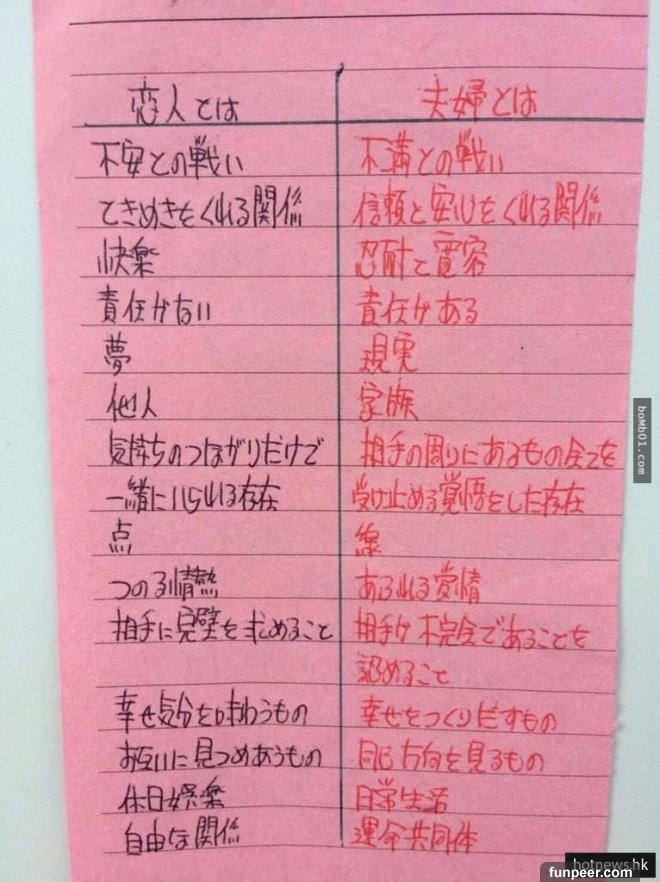 恋人とは 夫婦とは
不安との戦い 不満との戦い
ときめきをくれる関係 信頼と安心をくれる関係
快楽 忍耐と寛容
責任がない 責任がある
夢 現実
他人 家族
気持ちのつながりだけで 相手の周りにあるもの全てを
一緒にいられる存在 受け止める覚悟をした存在
点 線
つのる情熱 あふれる愛情
相手に完璧を求めること 相手が不完全であることを
認めること
幸せ気分を味わうもの 幸せをつくりだすもの
お互いに見つめあうもの 同じ方向を見るもの
休日娯楽 日常生活
自由な関係 運命共同体
bomb01.com
hotnews.hk
funpeer.com